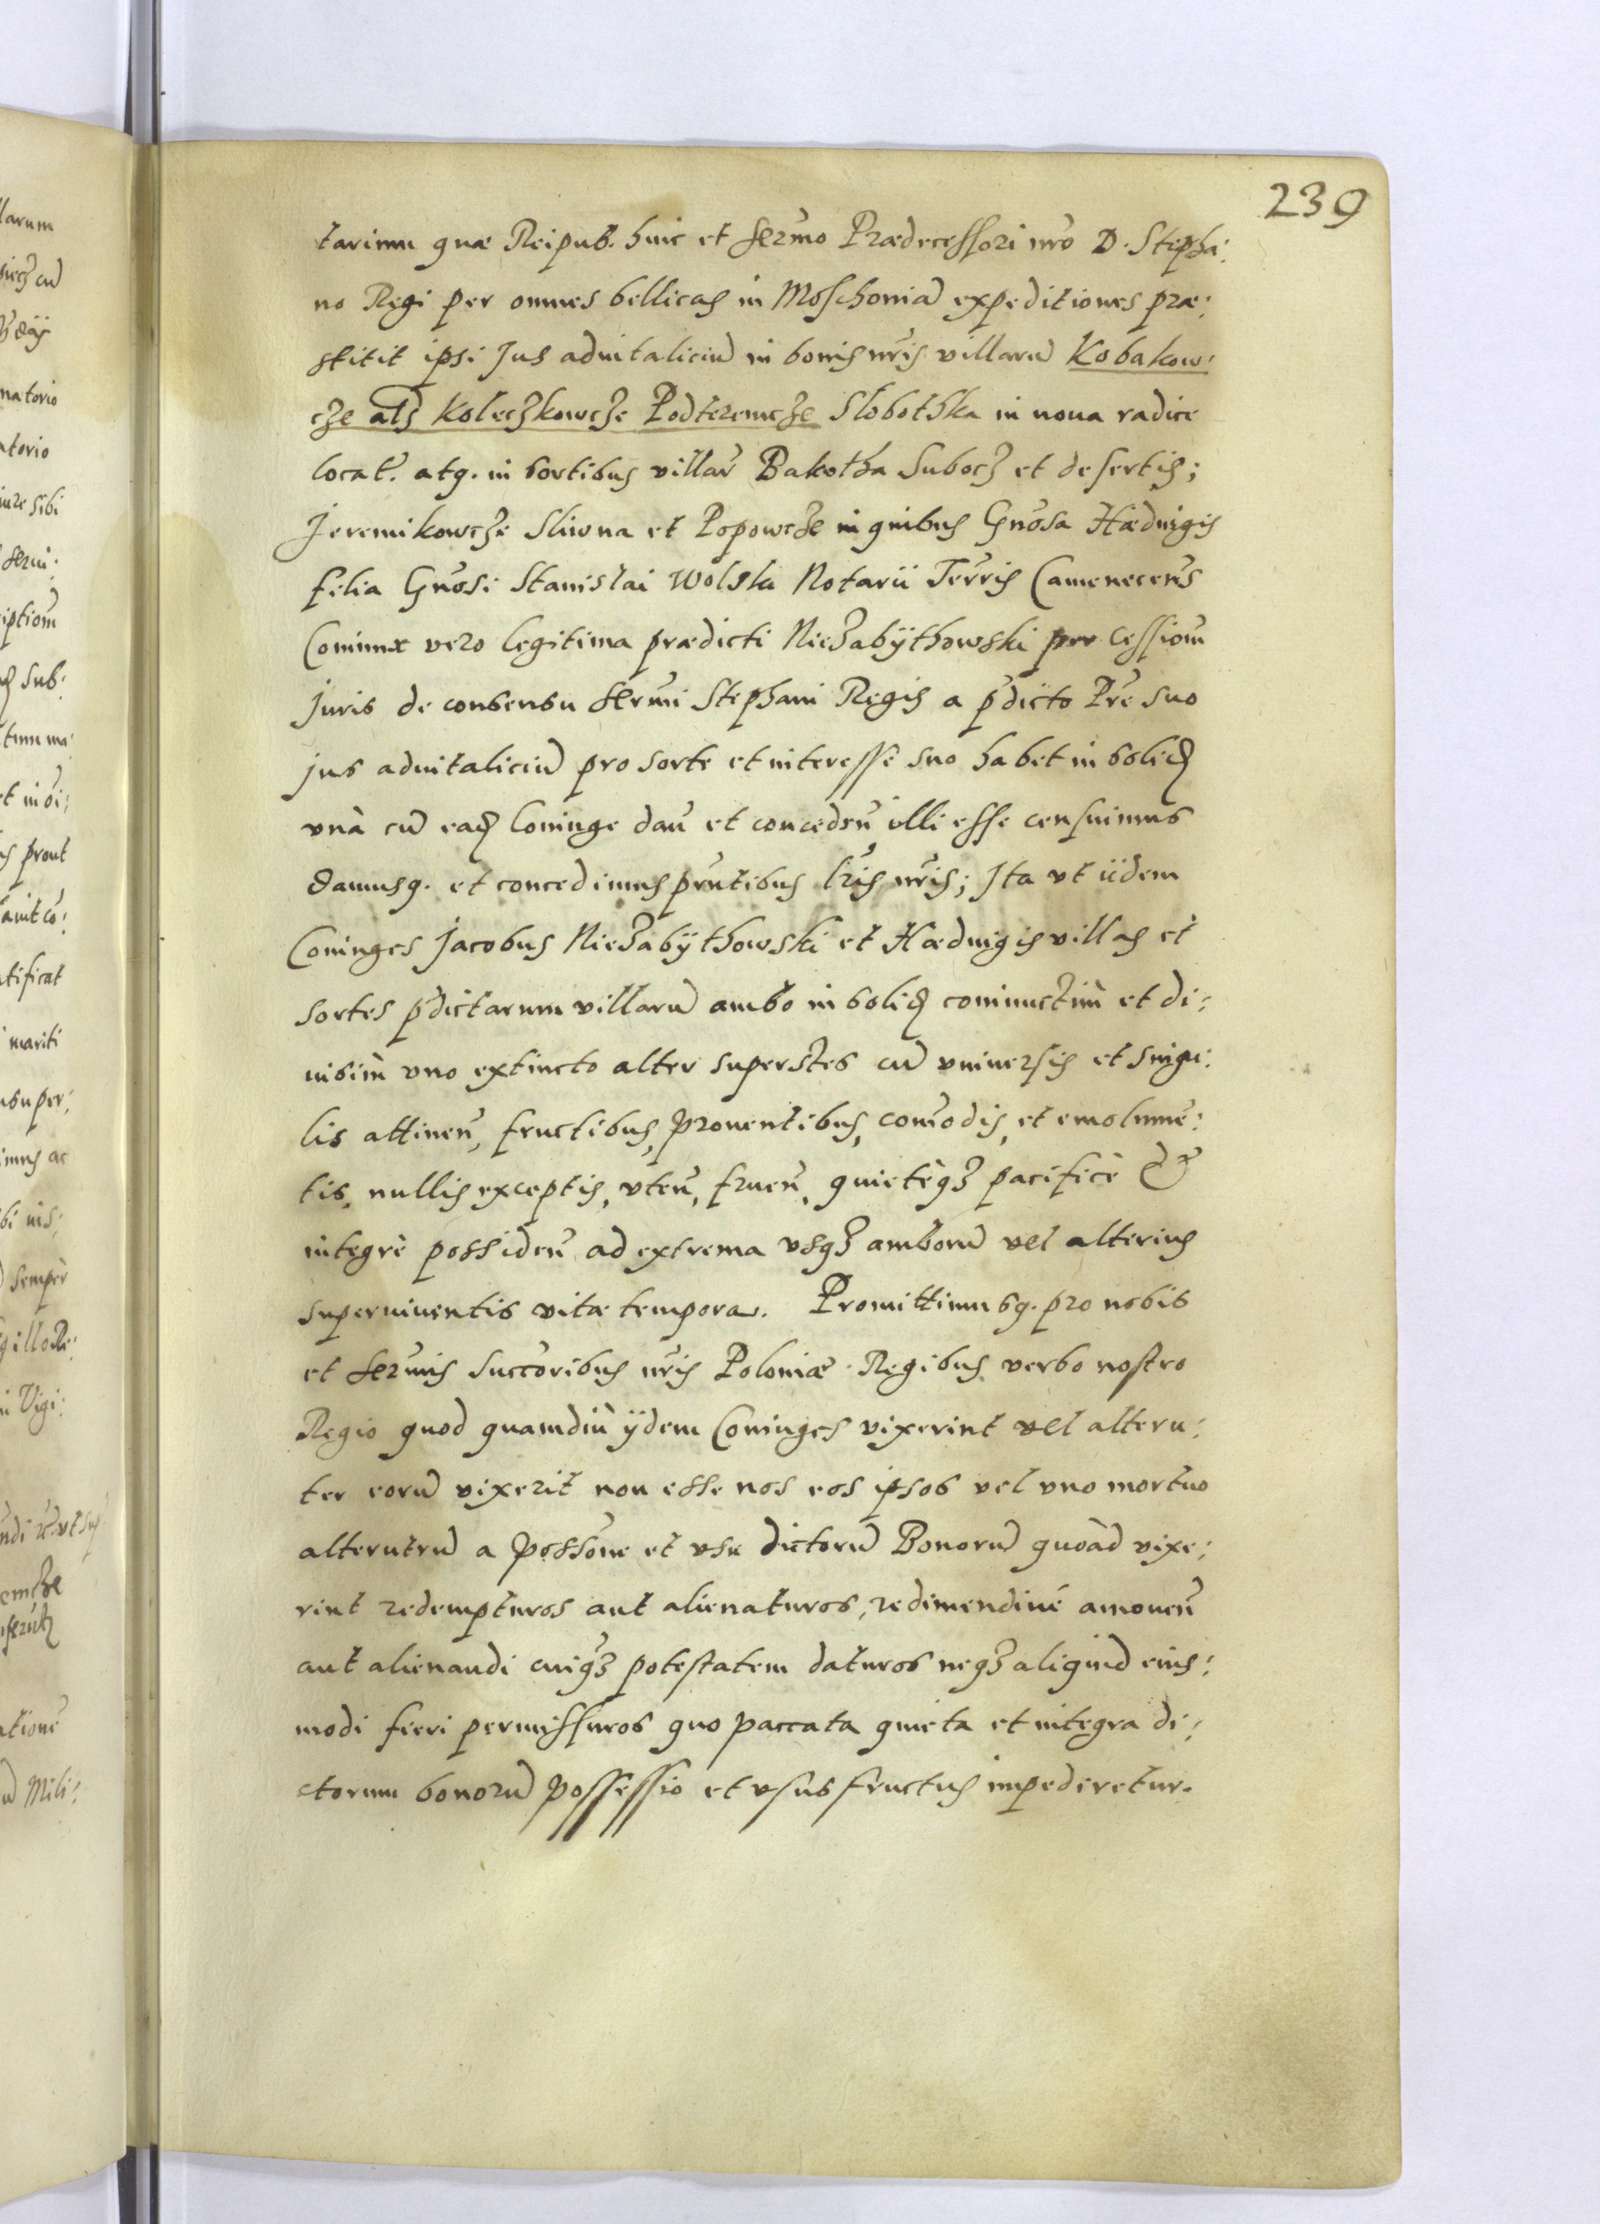 239
tarium quæ Reipub. huic et Sermo Prædecessori nro D. Stepha:
no Regi per omnes bellicas in Moschouiam expeditiones præ:
stitit ipsi Jus aduitalicium in bonis nris villarum Kobakow:
cze als Koleczkowcze Podteremcze Slobothka in noua radice
locat. atq. in sortibus villar Bakotha Subocz et desertis;
Jeremikowcze Sliwna et Popowcze in quibus Gnosa Hæduigis
filia Gnosi Stanislai Wolski Notarii Terris Camenecens
Coniunx vero legitima prædicti Niezabÿthowski per cessionem
Juris de consensu Sermi Stephani Regis a pdicto Pre suo
jus aduitalicium pro sorte et interesse suo habet in solidum
vnà cum eadem Coniuge dan et conceden illi esse censuimus
Damusq. et concedimus pntibus lris nris; Ita vt iidem
Coniuges Jacobus Niezabÿthowski et Hæduigis villas et
sortes pdictarum villarum ambo in solidum coniunctim et di:
uisim vno extincto alter superstes cum vniuersis et singu:
lis attinen, fructibus, prouentibus, comodis, et emolumē:
tis, nullis exceptis, vten, fruen, quietèqz pacificè &
integrè possiden ad extrema vsqz amborum vel alterius
superuiuentis vitæ tempora. Promittimusq. pro nobis
et Sermis Succoribus nris Poloniæ Regibus verbo nostro
Regio quod quamdiù ÿdem Coniuges vixerint vel alteru:
ter eorum vixerit non esse nos eos ipsos vel vno mortuo
alterutrum a possone et vsu dictorum Bonorum quoàd vixe:
rint redempturos aut alienaturos, redimendiué amouen
aut alienandi cuiqz potestatem daturos neqz aliquid eius:
modi fieri permissuros quo paccata quieta et integra di:
ctorum bonorum possessio et vsusfructus impediretur.